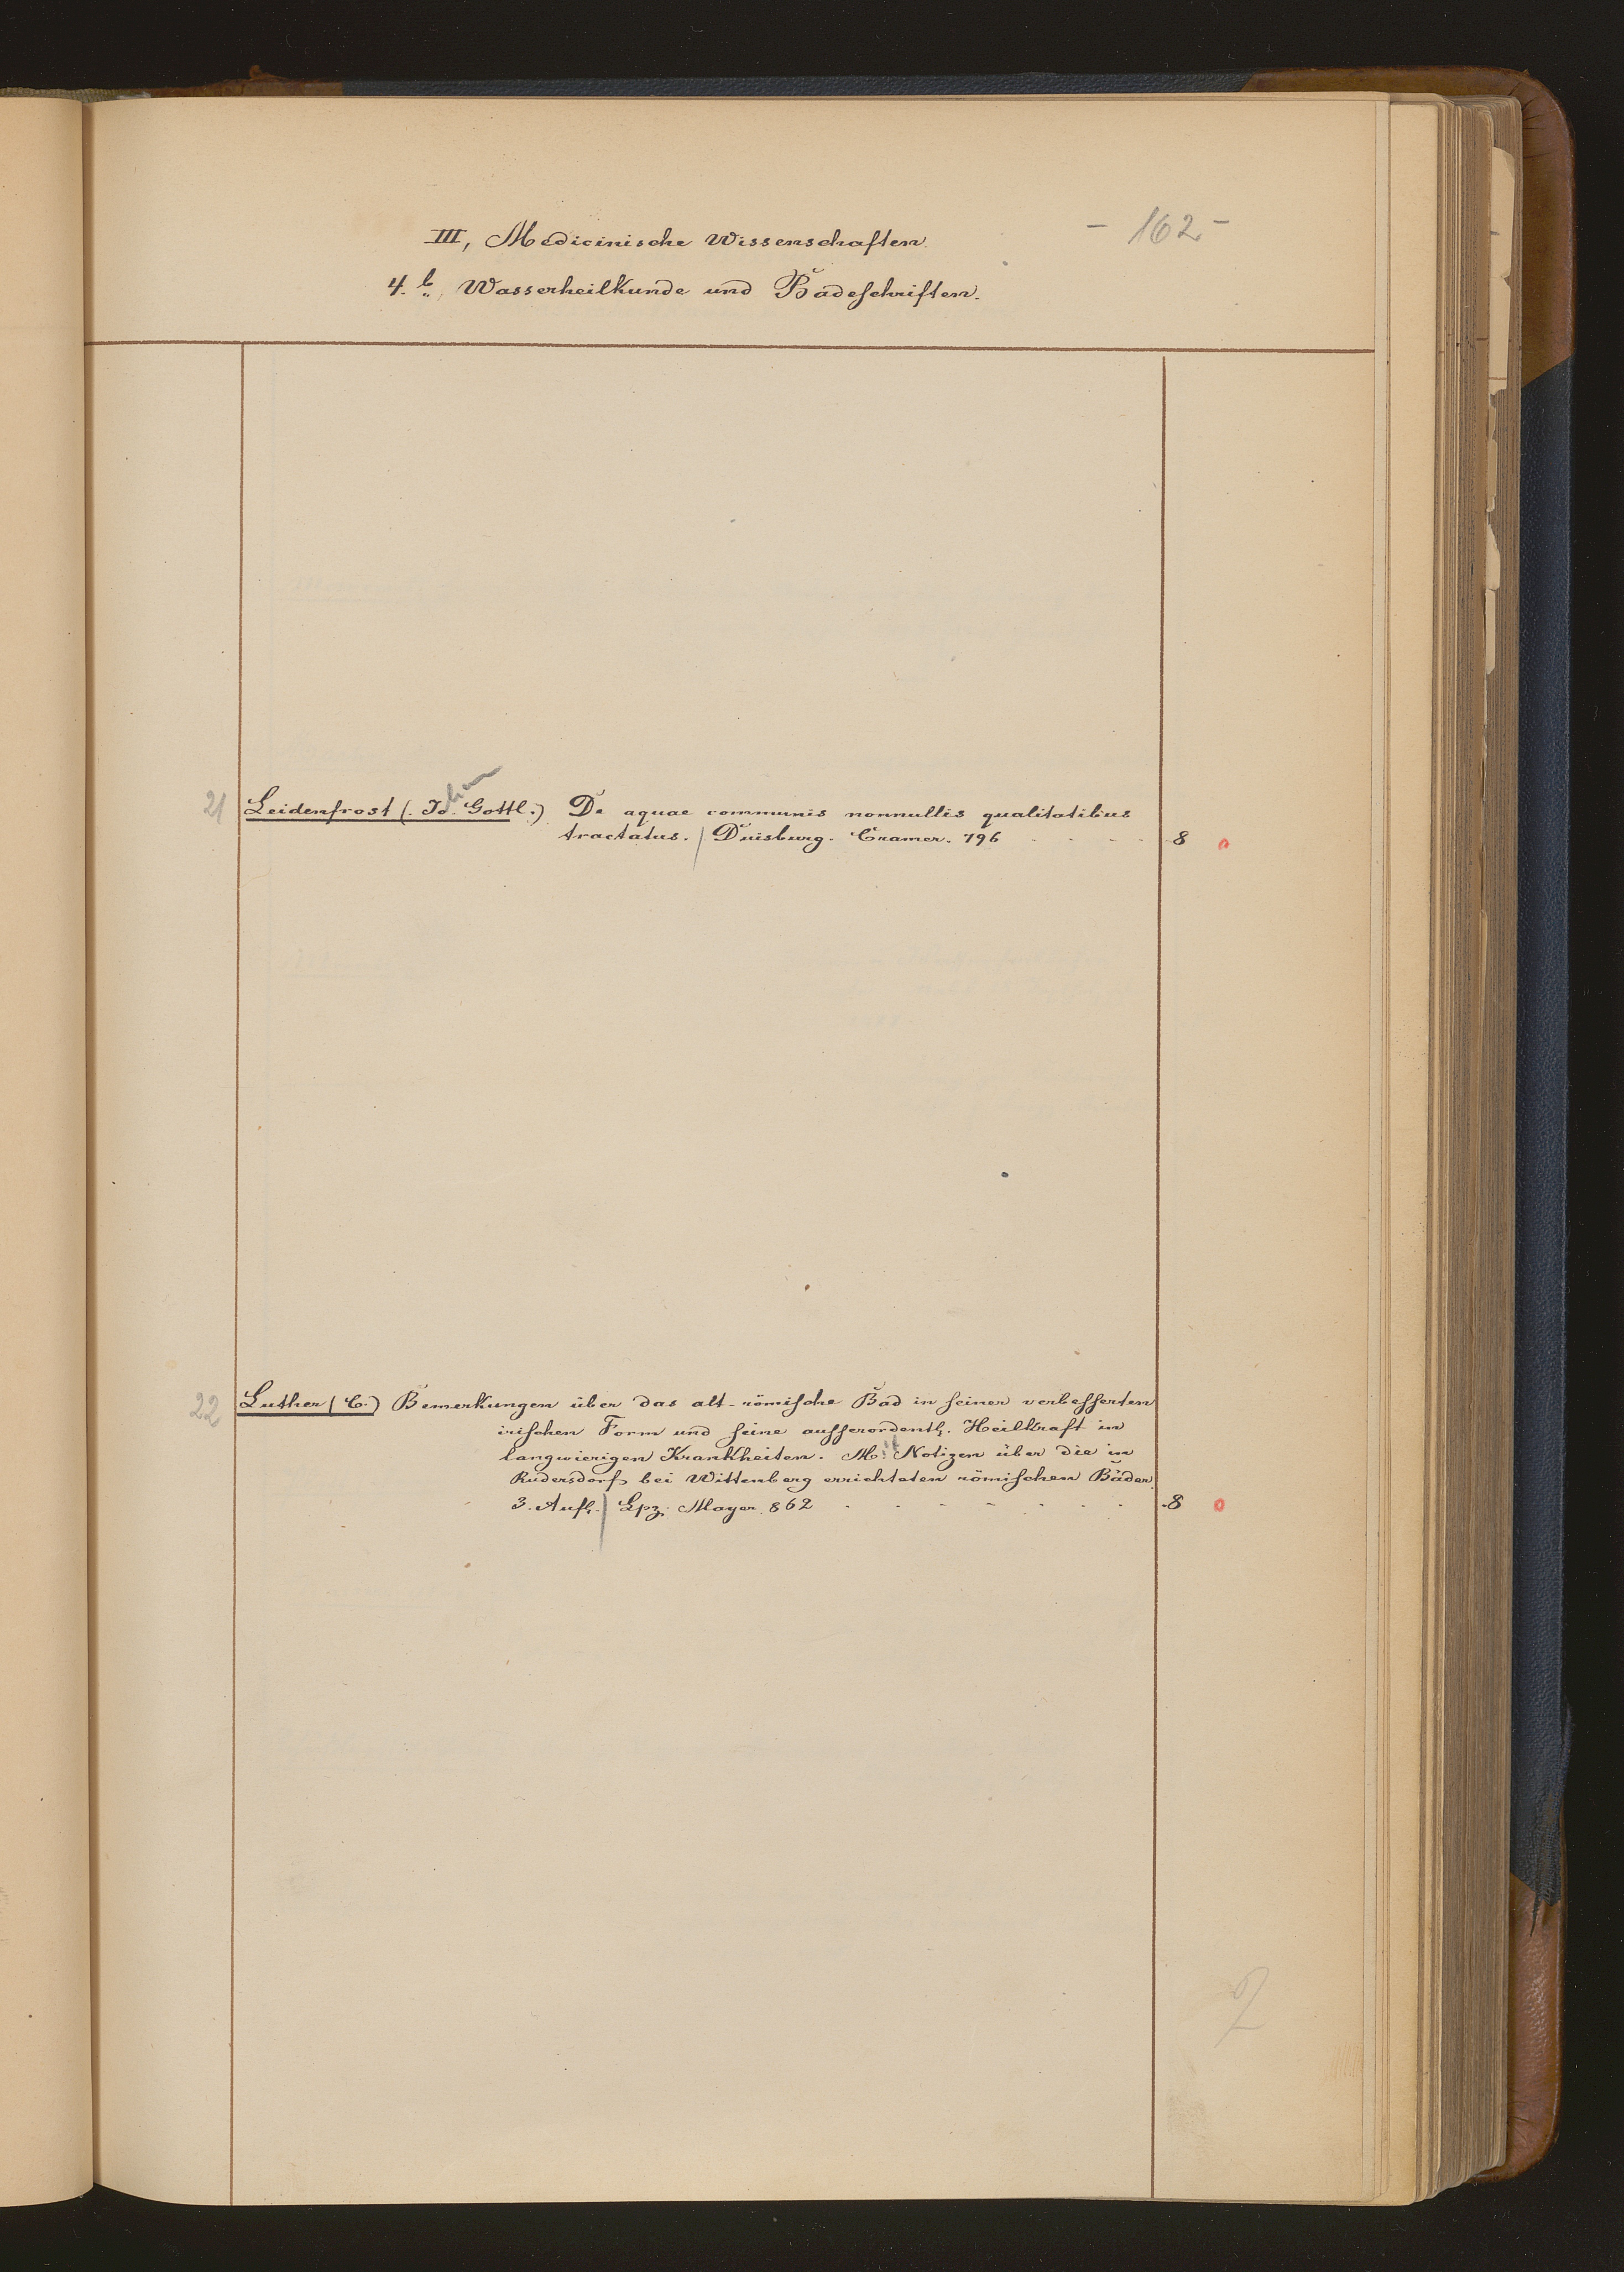 - 162 -
III, Medicinische Wissenschaften.
4. b, Wasserheilkunde und Badeschriften.
21 Leidenfrost (. Jo. Gottl.) De aquae communis nonnullis qualitatibus
tractatus. / Duisburg. Cramer. 796 - - - - 8 o
22 Luther (C.) Bemerkungen über das alt-römische Bad in seiner verbesserten
irischen Form und seine ausserordentl. Heilkraft in
langwierigen Krankheiten. Mit Notizen über die in
Rudersdorf bei Wittenberg errichteten römischen Bäder.
3. Aufl. / Lpz. Mayer. 862 - - - - - - - 8 o